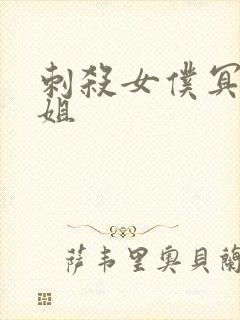 刺殺女僕冥
姐
萨韦里奥貝蘭